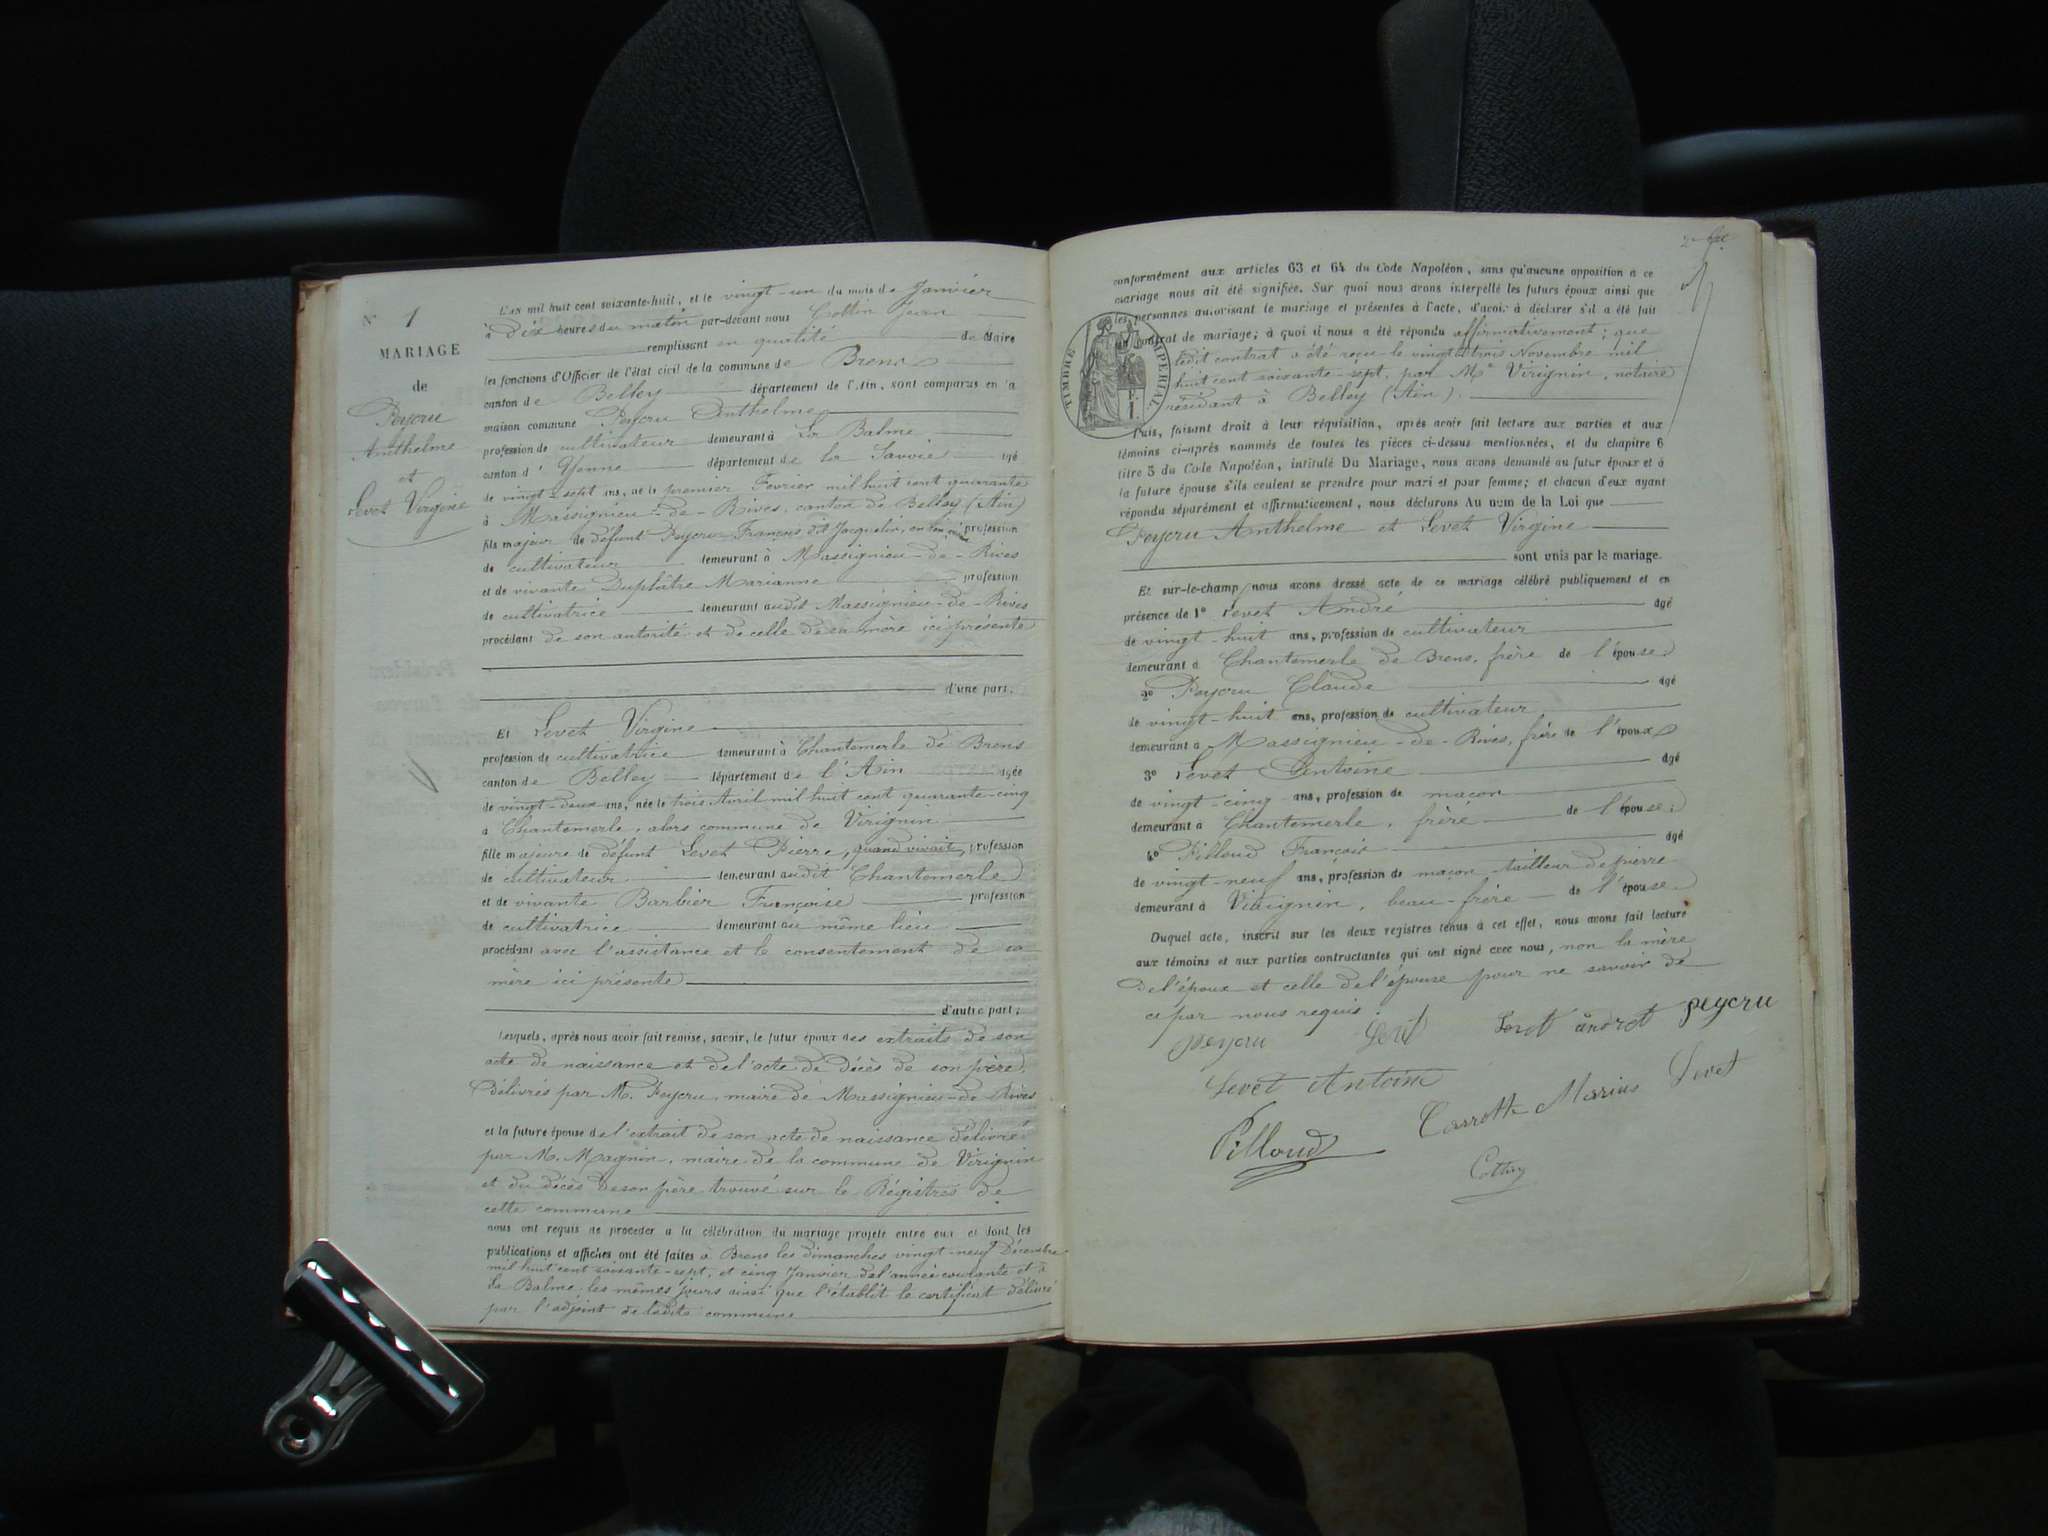 N° 1
MARIAGE
de
Peycru
Anthelme
et
Levet Virgine
L'an mil huit cent soixante-huit, et le vingt-un du mois de Janvier
à Dix heures du matin par-devant nous Cottin Jean
remplissant en qualité de Maire
les fonctions d'Officier de l'état civil de la commune de Brens
canton de Belley département de l'Ain, sont comparus en la
maison commune Peycru Anthelme
profession de cultivateur demeurant à La Balme
canton d' Yenne département de la Savoie âgé
de vingt-sept ans, né le premier Fevrier mil huit cent quarante
à Massignieu-de-Rives, canton de Belley (Ain)
fils majeur de défunt Peycru François dit Jacquelin, en son vivant profession
de cultivateur demeurant à Massignieu-de-Rives
et de vivante Duplâtre Marianne profession
de cultivatrice demeurant audit Massignieu-de-Rives
procédant de son autorité et de celle de sa mère ici présente
d'une part;
Et Levet Virgine
profession de cultivatrice demeurant à Chantemerle de Brens
canton de Belley département de l'Ain âgée
de vingt-deux ans, née le trois Avril mil huit cent quarante-cinq
à Chantemerle, alors commune de Virignin
fille majeure de défunt Levet Pierre, quand vivait, profession
de cultivateur demeurant audit Chantemerle
et de vivante Barbier Françoise profession
de cultivatrice demeurant au même lieu
procédant avec l'assistance et le consentement de sa
mère ici présente
d'autre part;
Lesquels, après nous avoir fait remise, savoir, le futur époux des extraits de son
acte de naissance et de l'acte de décès de son père,
Délivrés par M. Peycru, maire de Massignieu-de-Rives
et la future épouse de l'extrait de son acte de naissance délivré
par M. Magnin, maire de la commune de Virignin
et du décès de son père trouvé sur le Régistres de
cette commune
nous ont requis de procéder à la célébration du mariage projeté entre eux et dont les
publications et affiches ont été faites à Brens les dimanches vingt-neuf Décembre
mil huit cent soixante-sept, et cinq Janvier de l'année courante et à
la Balme les mêmes jours ainsi que l'établit le certificat délivré
par l'adjoint de ladite commune
conformément aux articles 63 et 64 du Code Napoléon, sans qu'aucune opposition à ce
mariage nous ait été signifiée. Sur quoi nous avons interpellé les futurs époux ainsi que
les personnes autorisant le mariage et présentes à l'acte, d'avoir à déclarer s'il a été fait
un contrat de mariage; à quoi il nous a été répondu affirmativement; que
ledit contrat a été reçu le vingt-trois Novembre mil
huit cent soixante-sept, par Me Virignin, notaire
résidant à Belley (Ain).
TIMBRE IMPERIAL
F. 1.
Puis, faisant droit à leur réquisition, après avoir fait lecture aux parties et aux
témoins ci-après nommés de toutes les pièces ci-dessus mentionnées, et du chapitre 6
titre 5 du Code Napoléon, intitulé Du Mariage, nous avons demandé au futur époux et à
la future épouse s'ils veulent se prendre pour mari et pour femme; et chacun d'eux ayant
répondu séparément et affirmativement, nous déclarons Au nom de la Loi que
Peycru Anthelme et Levet Virgine
sont unis par le mariage.
Et sur-le-champ nous avons dressé acte de ce mariage célébré publiquement et en
présence de 1° Levet André âgé
de vingt-huit ans, profession de cultivateur
demeurant à Chantemerle de Brens, frère de l'épouse
2° Peycru Claude âgé
de vingt-huit ans, profession de cultivateur
demeurant à Massignieu-de-Rives, frère de l'époux
3° Levet Antoine âgé
de vingt-cinq ans, profession de maçon
demeurant à Chantemerle, frère de l'épouse;
4° Pilloud François âgé
de vingt-neuf ans, profession de maçon tailleur de pierre
demeurant à Virignin, beau-frère de l'épouse.
Duquel acte, inscrit sur les deux registres tenus à cet effet, nous avons fait lecture
aux témoins et aux parties contractantes qui ont signé avec nous, non la mère
de l'époux et celle de l'épouse pour ne savoir de
ce par nous requis.
peycru Levet Levet andret peycru
Levet Antoine Levet
Pilloud Marius
Cottin